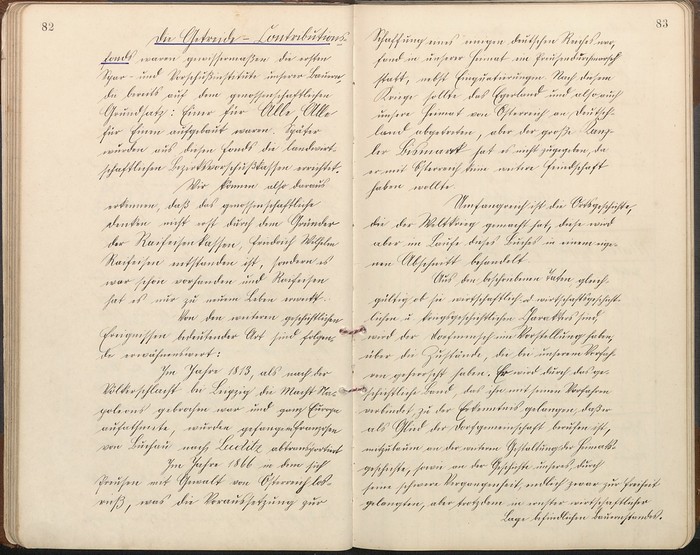 82
Die Getreide- Contributions-
fonds waren gewissermaßen die ersten
Spar- und Vorschußinstitute unserer Bauern,
da bereits auf dem genossenschaftlichen
Grundsatz: Einer für Alle Alle
für Einen aufgebaut waren. Später
wurden aus diesen Fonds die landwirt-
schaftlichen Bezirksvorschußkassen errichtet.
Wir können also daraus
erkennen, daß das genossenschaftliche
denken nicht erst durch den Gründer
der Raifeisenkassen, Friedrich Wilhelm
Raifeisen entstanden ist, sondern es
war schon vorhanden und Raifeisen
hat es nur zu neuem Leben erweckt.
Von den weiteren geschichtlichen
Ereignissen bedeutender Art sind folgen-
de erwähnenswert:
Im Jahre 1813, als nach der
Völkerschlacht bei Leipzig die Macht Na-
poleons gebrochen war und ganz Europa
aufathmete, wurden gefangene Franzosen
von Buchau nach Luditz abtransportiert
Im Jahre 1866 in dem sich
Preusen mit Gewalt von Österreich los-
riß, was die Voraussetzung zur
83
Schaffung eines einigen deutschen Reiches war,
fand in unserer Heimat ein Preusendurchmarsch
statt, nebst Einquatierungen. Nach diesem
Kriege sollte das Egerland und also auch
unsere Heimat von Österreich an Deutsch-
land abgetreten, aber der große Kanz-
ler Bismark hat es nicht zugegeben, da
er mit Österreich keine weitere Feindschaft
haben wollte.
Umfangreich ist die Ortsgeschichte,
die der Weltkrieg gemacht hat, diese wird
aber im Laufe dieses Buches in einem eige-
nen Abschnitt behandelt.
Aus den beschriebenen Taten gleich-
gültig ob sie wirtschaftlich u wirtschaftsgeschicht-
lichen u. kriegsgeschichtlichen Charakters sind
wird der Dorfmensch eine Vorstellung haben,
über die Zustände, die bei unseren Vorfah-
ren geherrscht haben. Er wird durch das ge-
schichtliche Band, das ihn mit seinen Vorfahren
verbindet zu der Erkenntnis gelangen, daß er
als Glied der Dorfgemeinschaft berufen ist,
mitzubauen an der weiteren Gestaltung der Heimats-
geschichte, sowie an der Geschichte unseres durch
seine schwere Vergangenheit endlich zwar zur Freiheit
gelangten, aber trotzdem in ernster wirtschaftlicher
Lage befindlichen Bauernstandes.